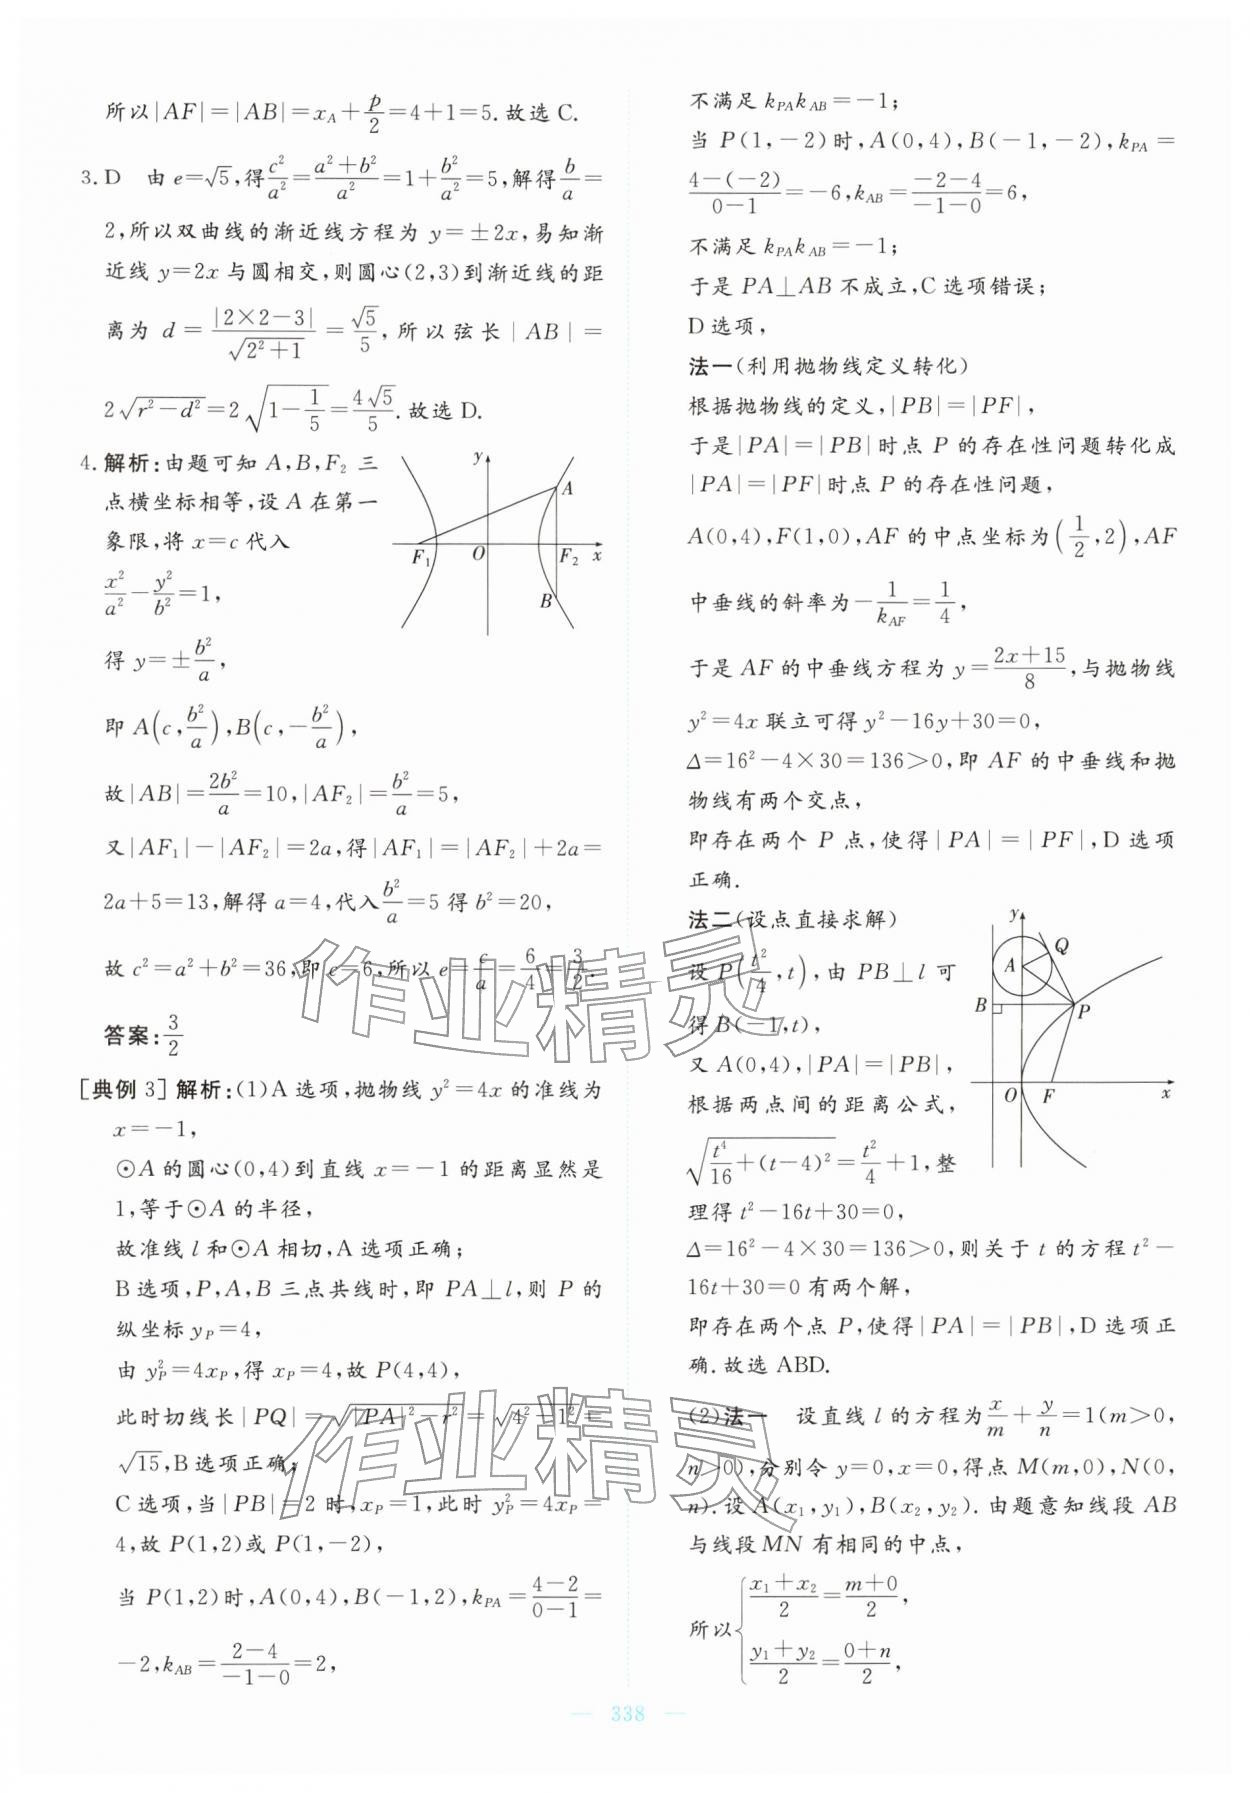 所以|AF|=|AB|=x_A+p/2=4+1=5.故选C.
3.D 由e=√5,得c²/a²=(a²+b²)/a²=1+b²/a²=5,解得b/a=
2,所以双曲线的渐近线方程为 y=±2x,易知渐
近线 y=2x 与圆相交,则圆心(2,3)到渐近线的距
离为 d=|2×2-3|/√(2²+1)=√5/5,所以弦长|AB|=
2√(r²-d²)=2√(1-1/5)=4√5/5.故选D.
4.解析:由题可知 A,B,F₂ 三
点横坐标相等,设 A 在第一
象限,将 x=c 代入
x²/a²-y²/b²=1,
得 y=±b²/a,
即 A(c,b²/a),B(c,-b²/a),
y
A
F₁
O
F₂
x
B
故|AB|=2b²/a=10,|AF₂|=b²/a=5,
又|AF₁|-|AF₂|=2a,得|AF₁|=|AF₂|+2a=
2a+5=13,解得 a=4,代入b²/a=5 得 b²=20,
故 c²=a²+b²=36,即 c=6,所以 e=c/a=6/4=3/2.
答案:3/2
[典例 3] 解析:(1)A 选项,抛物线 y²=4x 的准线为
x=-1,
⊙A 的圆心(0,4)到直线 x=-1 的距离显然是
1,等于⊙A 的半径,
故准线 l 和⊙A 相切,A 选项正确;
B 选项,P,A,B 三点共线时,即 PA⊥l,则 P 的
纵坐标 y_P=4,
由 y_P²=4x_P,得 x_P=4,故 P(4,4),
此时切线长|PQ|=√(|PA|²-r²)=√(4²-1²)=
√15,B 选项正确;
C 选项,当|PB|=2 时,x_P=1,此时 y_P²=4x_P=
4,故 P(1,2)或 P(1,-2),
当 P(1,2)时,A(0,4),B(-1,2),k_PA=(4-2)/(0-1)=
-2,k_AB=(2-4)/(-1-0)=2,
不满足 k_PAk_AB=-1;
当 P(1,-2)时,A(0,4),B(-1,-2),k_PA=
(4-(-2))/(0-1)=-6,k_AB=(-2-4)/(-1-0)=6,
不满足 k_PAk_AB=-1;
于是 PA⊥AB 不成立,C 选项错误;
D 选项,
法一(利用抛物线定义转化)
根据抛物线的定义,|PB|=|PF|,
于是|PA|=|PB|时点 P 的存在性问题转化成
|PA|=|PF|时点 P 的存在性问题,
A(0,4),F(1,0),AF 的中点坐标为(1/2,2),AF
中垂线的斜率为-1/k_AF=1/4,
于是 AF 的中垂线方程为 y=(2x+15)/8,与抛物线
y²=4x 联立可得 y²-16y+30=0,
Δ=16²-4×30=136>0,即 AF 的中垂线和抛
物线有两个交点,
即存在两个 P 点,使得|PA|=|PF|,D 选项
正确.
法二(设点直接求解)
设 P(t²/4,t),由 PB⊥l 可
得 B(-1,t),
又 A(0,4),|PA|=|PB|,
根据两点间的距离公式,
√(t⁴/16+(t-4)²)=t²/4+1,整
理得 t²-16t+30=0,
y
Q
A
B
P
O
F
x
Δ=16²-4×30=136>0,则关于 t 的方程 t²-
16t+30=0 有两个解,
即存在两个点 P,使得|PA|=|PB|,D 选项正
确.故选 ABD.
(2)法一 设直线 l 的方程为x/m+y/n=1(m>0,
n>0),分别令 y=0,x=0,得点 M(m,0),N(0,
n).设 A(x₁,y₁),B(x₂,y₂).由题意知线段 AB
与线段MN 有相同的中点,
所以{(x₁+x₂)/2=(m+0)/2,
(y₁+y₂)/2=(0+n)/2,
作业精灵
作业精灵
— 338 —